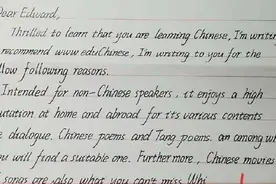 Dear Edward,
Thrilled to learn that you are learning Chinese, I'm writing
recommend www.eduChinese, I'm writing to you for the
llow following reasons.
Intended for non-Chinese speakers, it enjoys a high
utation at home and abroad for its various contents
e dialogue. Chinese poems and Tang poems. an among wh
ou will find a suitable one. Furthermore, Chinese movies
songs are also what you can't miss. Whi